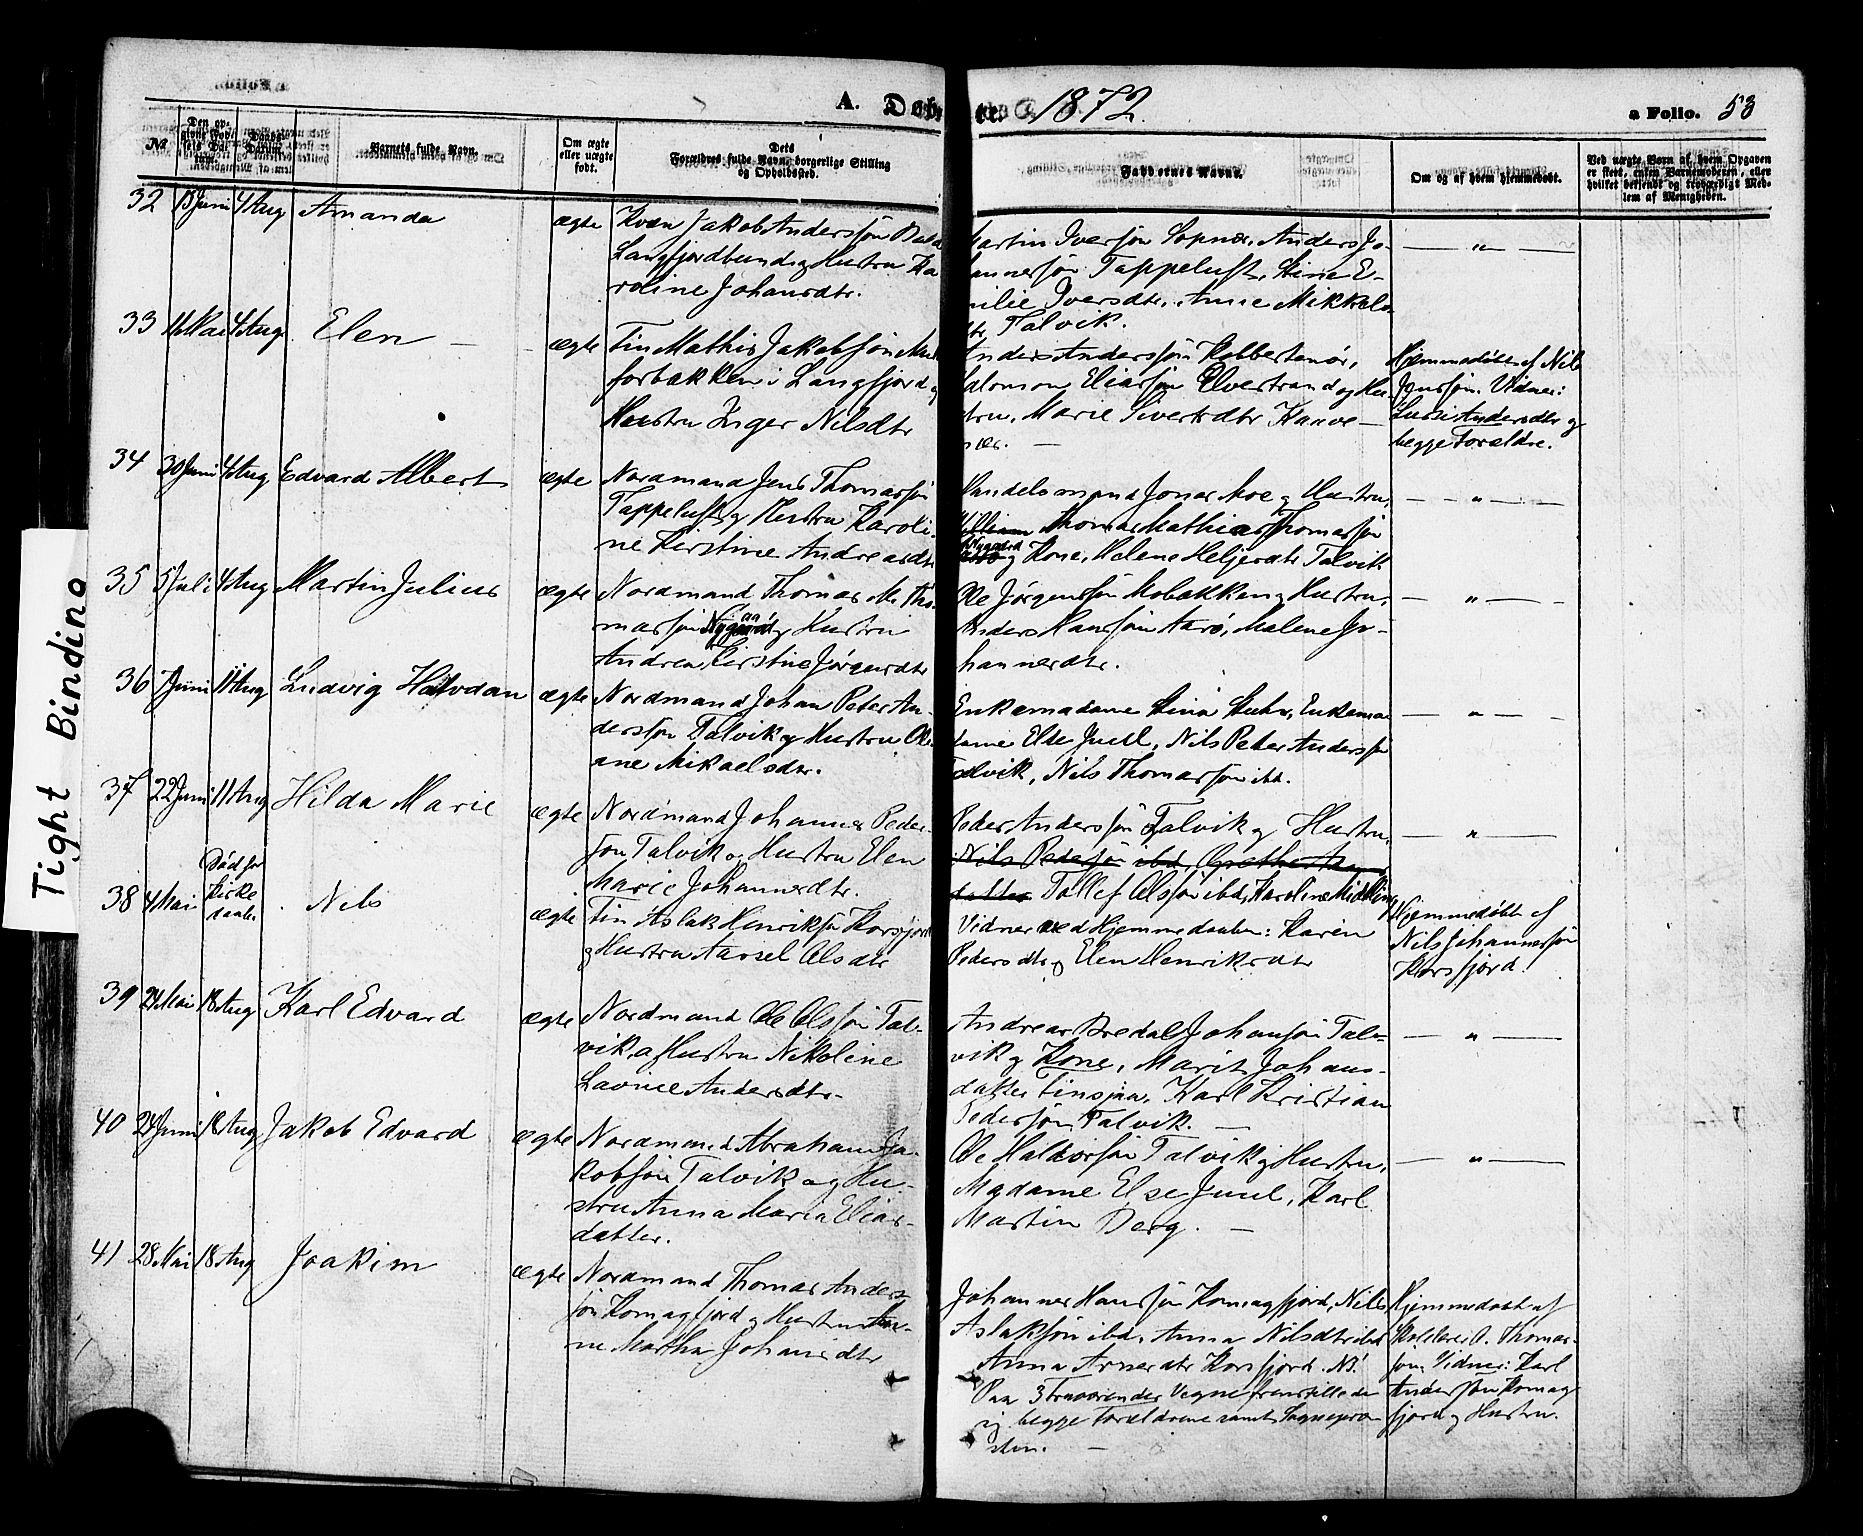 A. Døbte. 1872. a Folio. 53
№
Den opgivne Fødsels Datum.
Daabs Datum.
Barnets fulde Navn.
Om ægte eller uægte født.
Dets Forældres fulde Navn, borgerlige Stilling og Opholdssted.
Faddernes Navne.
Om og af hvem hjemmedøbt.
Ved uægte Børn af hvem Opgaven er skeet, enten Barnemoderen, eller hvilket bekjendt og troværdigt Medlem af Menigheden.
Tight Binding
32 13 Juni 4 Aug Amanda ægte
Kvæn Jakob Andersjøn
Langfjordbund og Hustru Ka-
roline Johansdtr.
Martin Iversjøn Sopnæs, Anders Jo-
hannesjøn Tappeluft, Stina E-
milie Iversdtr, Anne Mikkels-
dtr Talvik.
— " —
33 Mai 4 Aug Elen — ægte
Fin Mathis Jakobsjøn
forbakken i Langfjord og
Hustru Inger Nilsdtr
Anders Andersjøn Kobbertønør,
Salomon Eliasjøn Elvestrand og Hu-
stru, Marie Sivertsdtr Kanoe-
næs. —
Hjemmedøbt af Nils
Jonssjøn. Vidner:
Andersdtr og
begge Forældre.
34 30 Juni 4 Aug Edvard Albert ægte
Nordmand Jens Thomassjøn
Tappeluft og Hustru Karoli-
ne Kirstine Andreasdtr
Handelsmand Jonas Moe og Hustru,
Thomas Mathias Thomassjøn
og Kone, Malene Heljesdtr Talvik
— " —
35 5 Juli 4 Aug Martin Julius ægte
Nordmand Thomas M. Tho-
massjøn og Hustru
Andrea Kirstine Jørgensdtr
Ole Jørgenssjøn Mobakken og Hustru,
Anders Hanssjøn Aarø, Malene Jo-
hannesdtr.
— " —
36 7 Juni 11 Aug Ludvig Halvdan ægte
Nordmand Johan Peter An-
dersjøn Talvik og Hustru Ol-
ane Mikaelsdtr.
Enkemadame Stina Buhr, Enkema-
dame Else Juul, Nils Peter Andersjøn
Talvik, Nils Thomassjøn ibd.
— " —
37 22 Juni 11 Aug Hilda Marie ægte
Nordmand Johannes Peder-
sjøn Talvik og Hustru Elen
Marie Johannesdtr.
Peder Andersjøn Talvik og Hustru,
Nils Pedersjøn ibd, Grethe
datter Tollef Olsjøn ibd, Karoline
— " —
38 4 Mai Død før Kirkedaaben Nils ægte
Fin Aslak Henriksjøn Korsfjord
og Hustru Aansel Olsdtr
Vidner ved Hjemmedaaben: Karen
Pedersdtr og Elen Henriksdtr
Hjemmedøbt af
Nils Johannessjøn
Korsfjord.
39 24 Mai 18 Aug Karl Edvard ægte
Nordmand Ole Olsjøn Tal-
vik og Hustru Nikoline
Lavine Andersdtr.
Andreas Bredal Johansjøn Tal-
vik og Kone, Marit Johans-
datter Finsjaa, Karl Kristian
Pedersjøn Talvik. —
— " —
40 24 Juni 18 Aug Jakob Edvard ægte
Nordmand Abraham Ja-
kobsjøn Talvik og Hu-
stru Anna Maria Elias-
datter.
Ole Haldorsjøn Talvik og Hustru,
Madame Else Juul, Karl
Martin Berg. —
— " —
41 28 Mai 18 Aug Joakim ægte
Nordmand Thomas Anders-
sjøn Komagfjord og Hustru An-
ne Martha Johansdtr
Johannes Hansjøn Komagfjord, Nils
Aslaksjøn ibd, Anna Nilsdtr ibd
Anna Arnesdtr Korsfjord. NB.
Paa 3 Fraværendes Vegne fremstillede
sig begge Forældrene samt Sognepræ-
sten. —
Hjemmedøbt af
Skolelærer O. Thomas-
sjøn. Vidner: Karl
Andersjøn Komag-
fjord og Hustru.